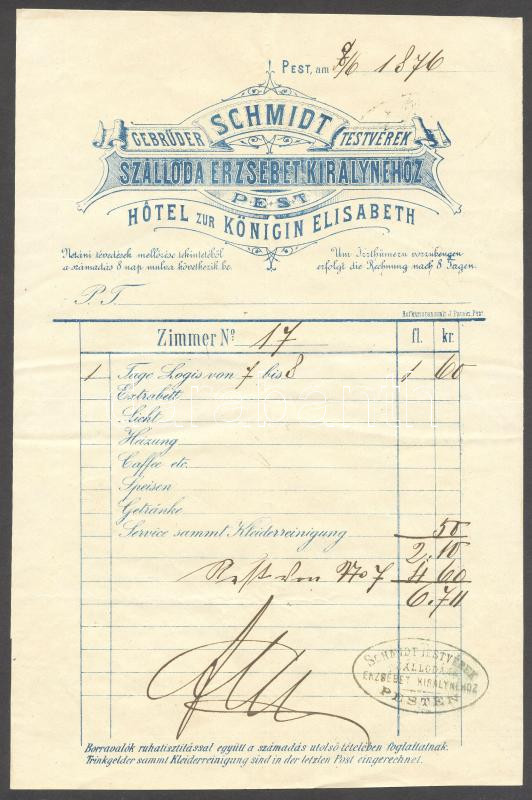 PEST, am 8/6 1876
SCHMIDT
GEBRÜDER TESTVÉREK
SZÁLLODA ERZSÉBET KIRÁLYNÉHOZ
PEST
HÔTEL ZUR KÖNIGIN ELISABETH
Netáni tévedések mellőzése tekintetéből Um Irrthümern vorzubeugen
a számadás 8 nap mulva következik be. erfolgt die Rechnung nach 8 Tagen.
P. T.
Zimmer No 17 fl. kr.
1 Tage Logis von 7 bis 8 1 60
Extrabett
Licht
Heizung
Caffee etc.
Speisen
Getränke
Service sammt Kleiderreinigung 50
2.10
Rest von No 7 4 60
6.70
SCHMIDT TESTVÉREK
SZÁLLODÁJA
ERZSÉBET KIRÁLYNÉHOZ
PESTEN
Borravalók ruhatisztitással együtt a számadás utolsó tételében foglaltatnak.
Trinkgelder sammt Kleiderreinigung sind in der letzten Post eingerechnet.